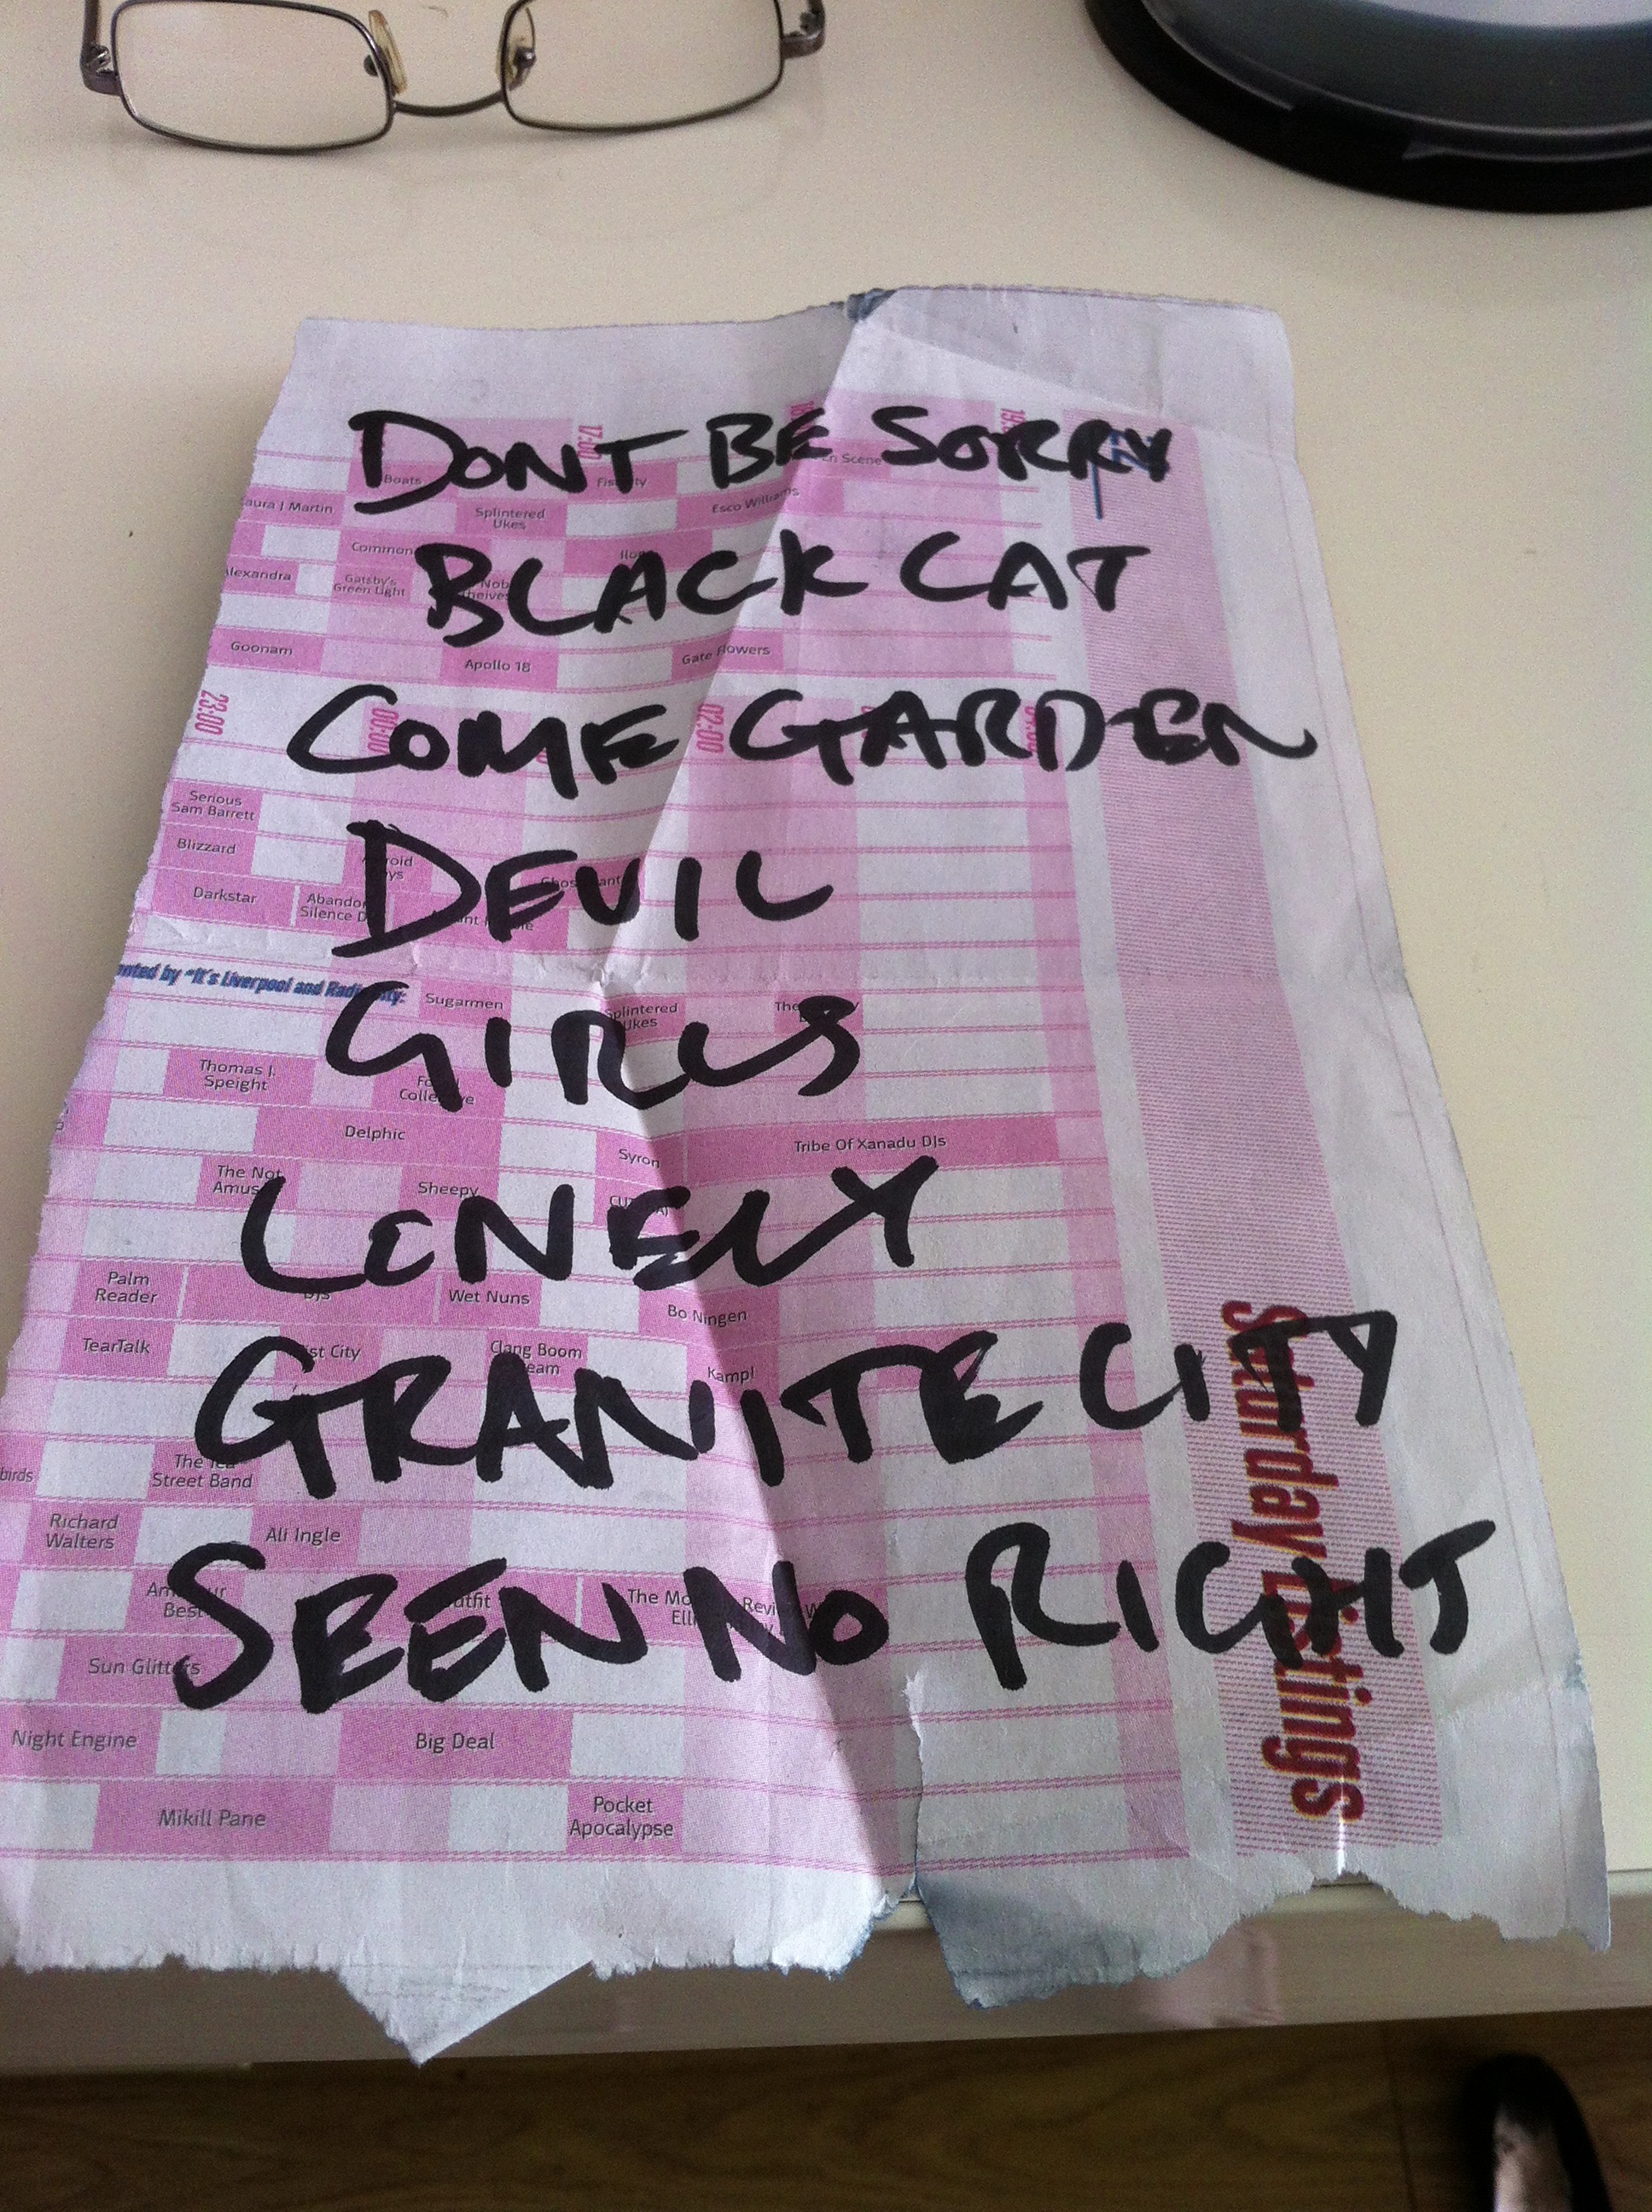 DONT BE SORRY
BLACK CAT
COME GARDEN
DEVIL
GIRLS
LONELY
GRANITE CITY
SEEN NO RIGHT
17:00
Boats
Laura J Martin
Splintered
Ukes
Esco Williams
Common
Alexandra
Gatsby's
Green Light
Goonam
Apollo 18
Gate Flowers
23:00
00:00
02:00
Serious
Sam Barrett
Blizzard
Darkstar
Silence
by "It's Liverpool and Radio City:
Sugarmen
Splintered
Ukes
The
Thomas J.
Speight
Delphic
Syron
Tribe Of Xanadu DJs
The Not
Sheepy
Palm
Reader
DJs
Wet Nuns
Bo Ningen
TearTalk
City
Clang Boom
Kamp!
The Tea
Street Band
Richard
Walters
Ali Ingle
Best
The
Sun Glitters
Night Engine
Big Deal
Mikill Pane
Pocket
Apocalypse
Saturday Listings